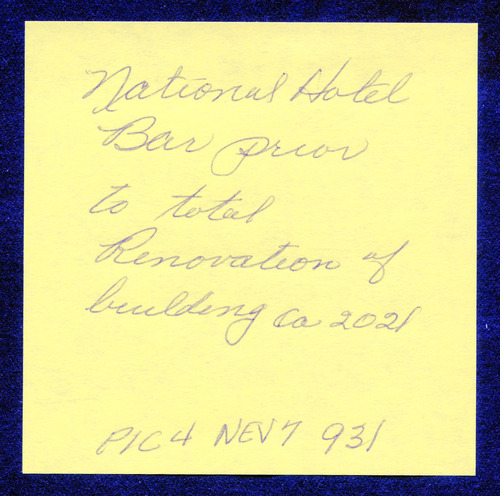 National Hotel
Bar prior
to total
Renovation of
building ca 2021
PIC4 NEV7 931